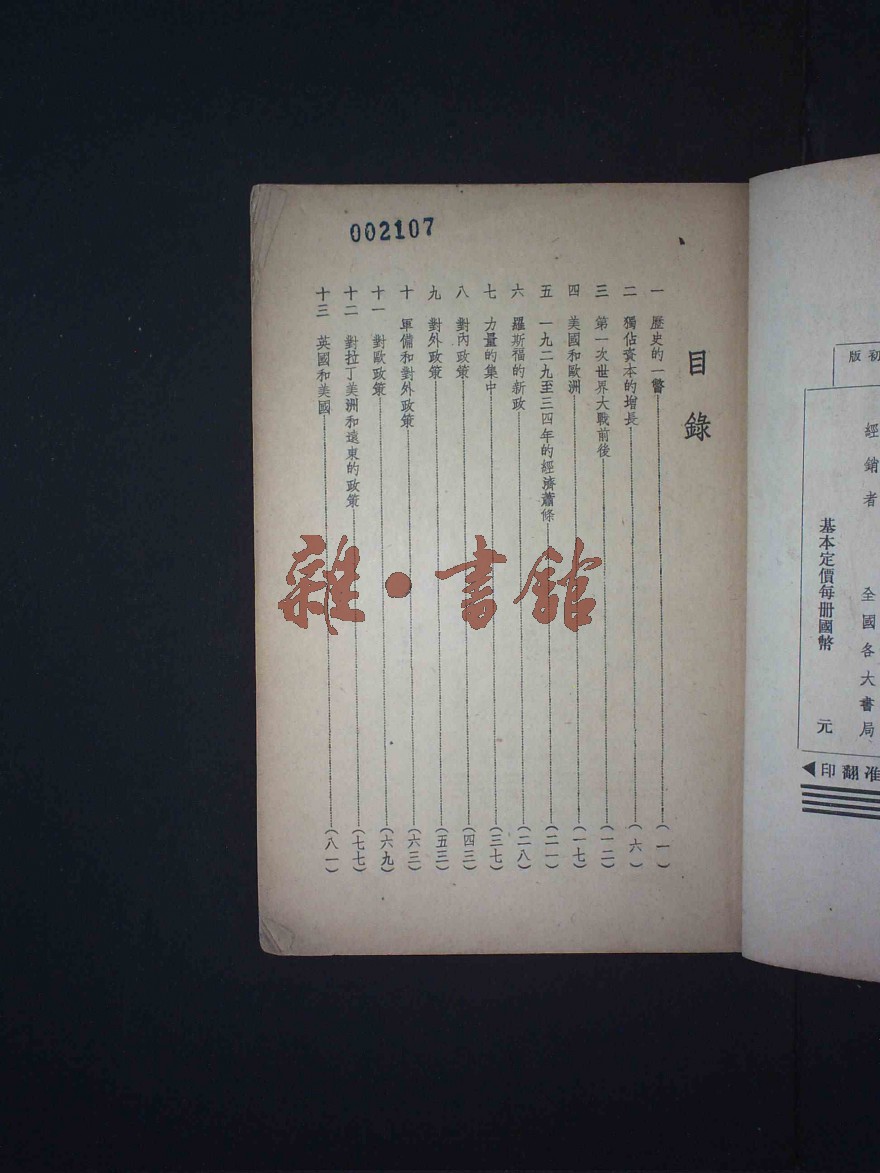 初版
經銷者 全國各大書局
基本定價每册國幣 元
印翻准
002107
目錄
一 歷史的一瞥 (一)
二 獨佔資本的增長 (六)
三 第一次世界大戰前後 (一二)
四 美國和歐洲 (一七)
五 一九二九至三四年的經濟蕭條 (二一)
六 羅斯福的新政 (二八)
七 力量的集中 (三七)
八 對內政策 (四三)
九 對外政策 (五三)
十 軍備和對外政策 (六三)
十一 對歐政策 (六九)
十二 對拉丁美洲和遠東的政策 (七七)
十三 英國和美國 (八一)
雜·書館